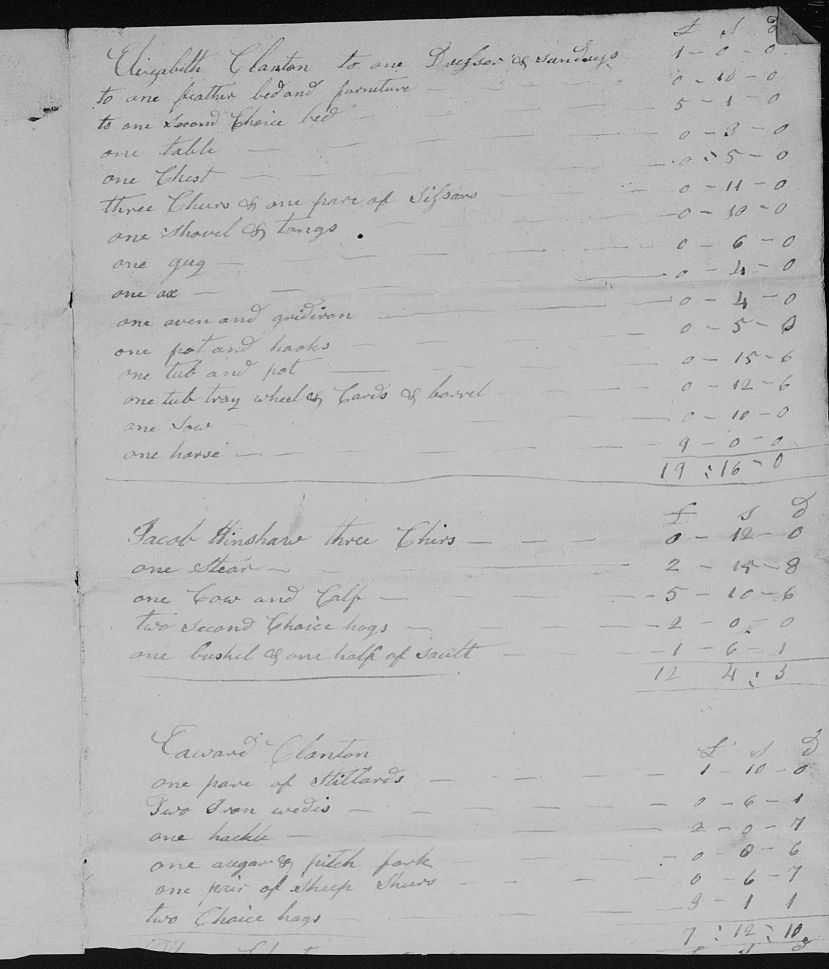 £ s d
Elizabeth Clanton to one Dresser & sundreys 1 - 0 - 0
to one feather bed and furniture 0 - 10 - 0
to one second Choice bed 5 - 1 - 0
one table 0 - 3 - 0
one Chest 0 : 5 - 0
three Cheirs & one pare of Sissars 0 - 11 - 0
one Shovel & tongs 0 - 10 - 0
one gug 0 - 6 - 0
one ax 0 - 4 - 0
one oven and gridiron 0 - 4 - 0
one pot and hooks 0 - 5 - 0
one tub and pot 0 - 15 - 6
one tub tray wheel & Cards & barrel 0 - 12 - 6
one Sow 0 - 10 - 0
one horse 9 - 0 - 0
19 : 16 - 0
£ s d
Jacob Hinshaw three Chirs 0 - 12 - 0
one Stear 2 - 15 - 8
one Cow and Calf 5 - 10 - 6
two second Choice hogs 2 - 0 - 0
one bushel & one half of sault 1 - 6 - 1
12 4 : 3
Edward Clanton £ s d
one pare of Stillards 1 - 10 - 0
Two Iron wedis 0 - 6 - 1
one hackle 2 - 0 - 7
one augar & pitch fork 0 - 8 - 6
one pair of Sheep Shurs 0 - 6 - 7
two Choice hogs 3 1 1
7 : 12 : 10